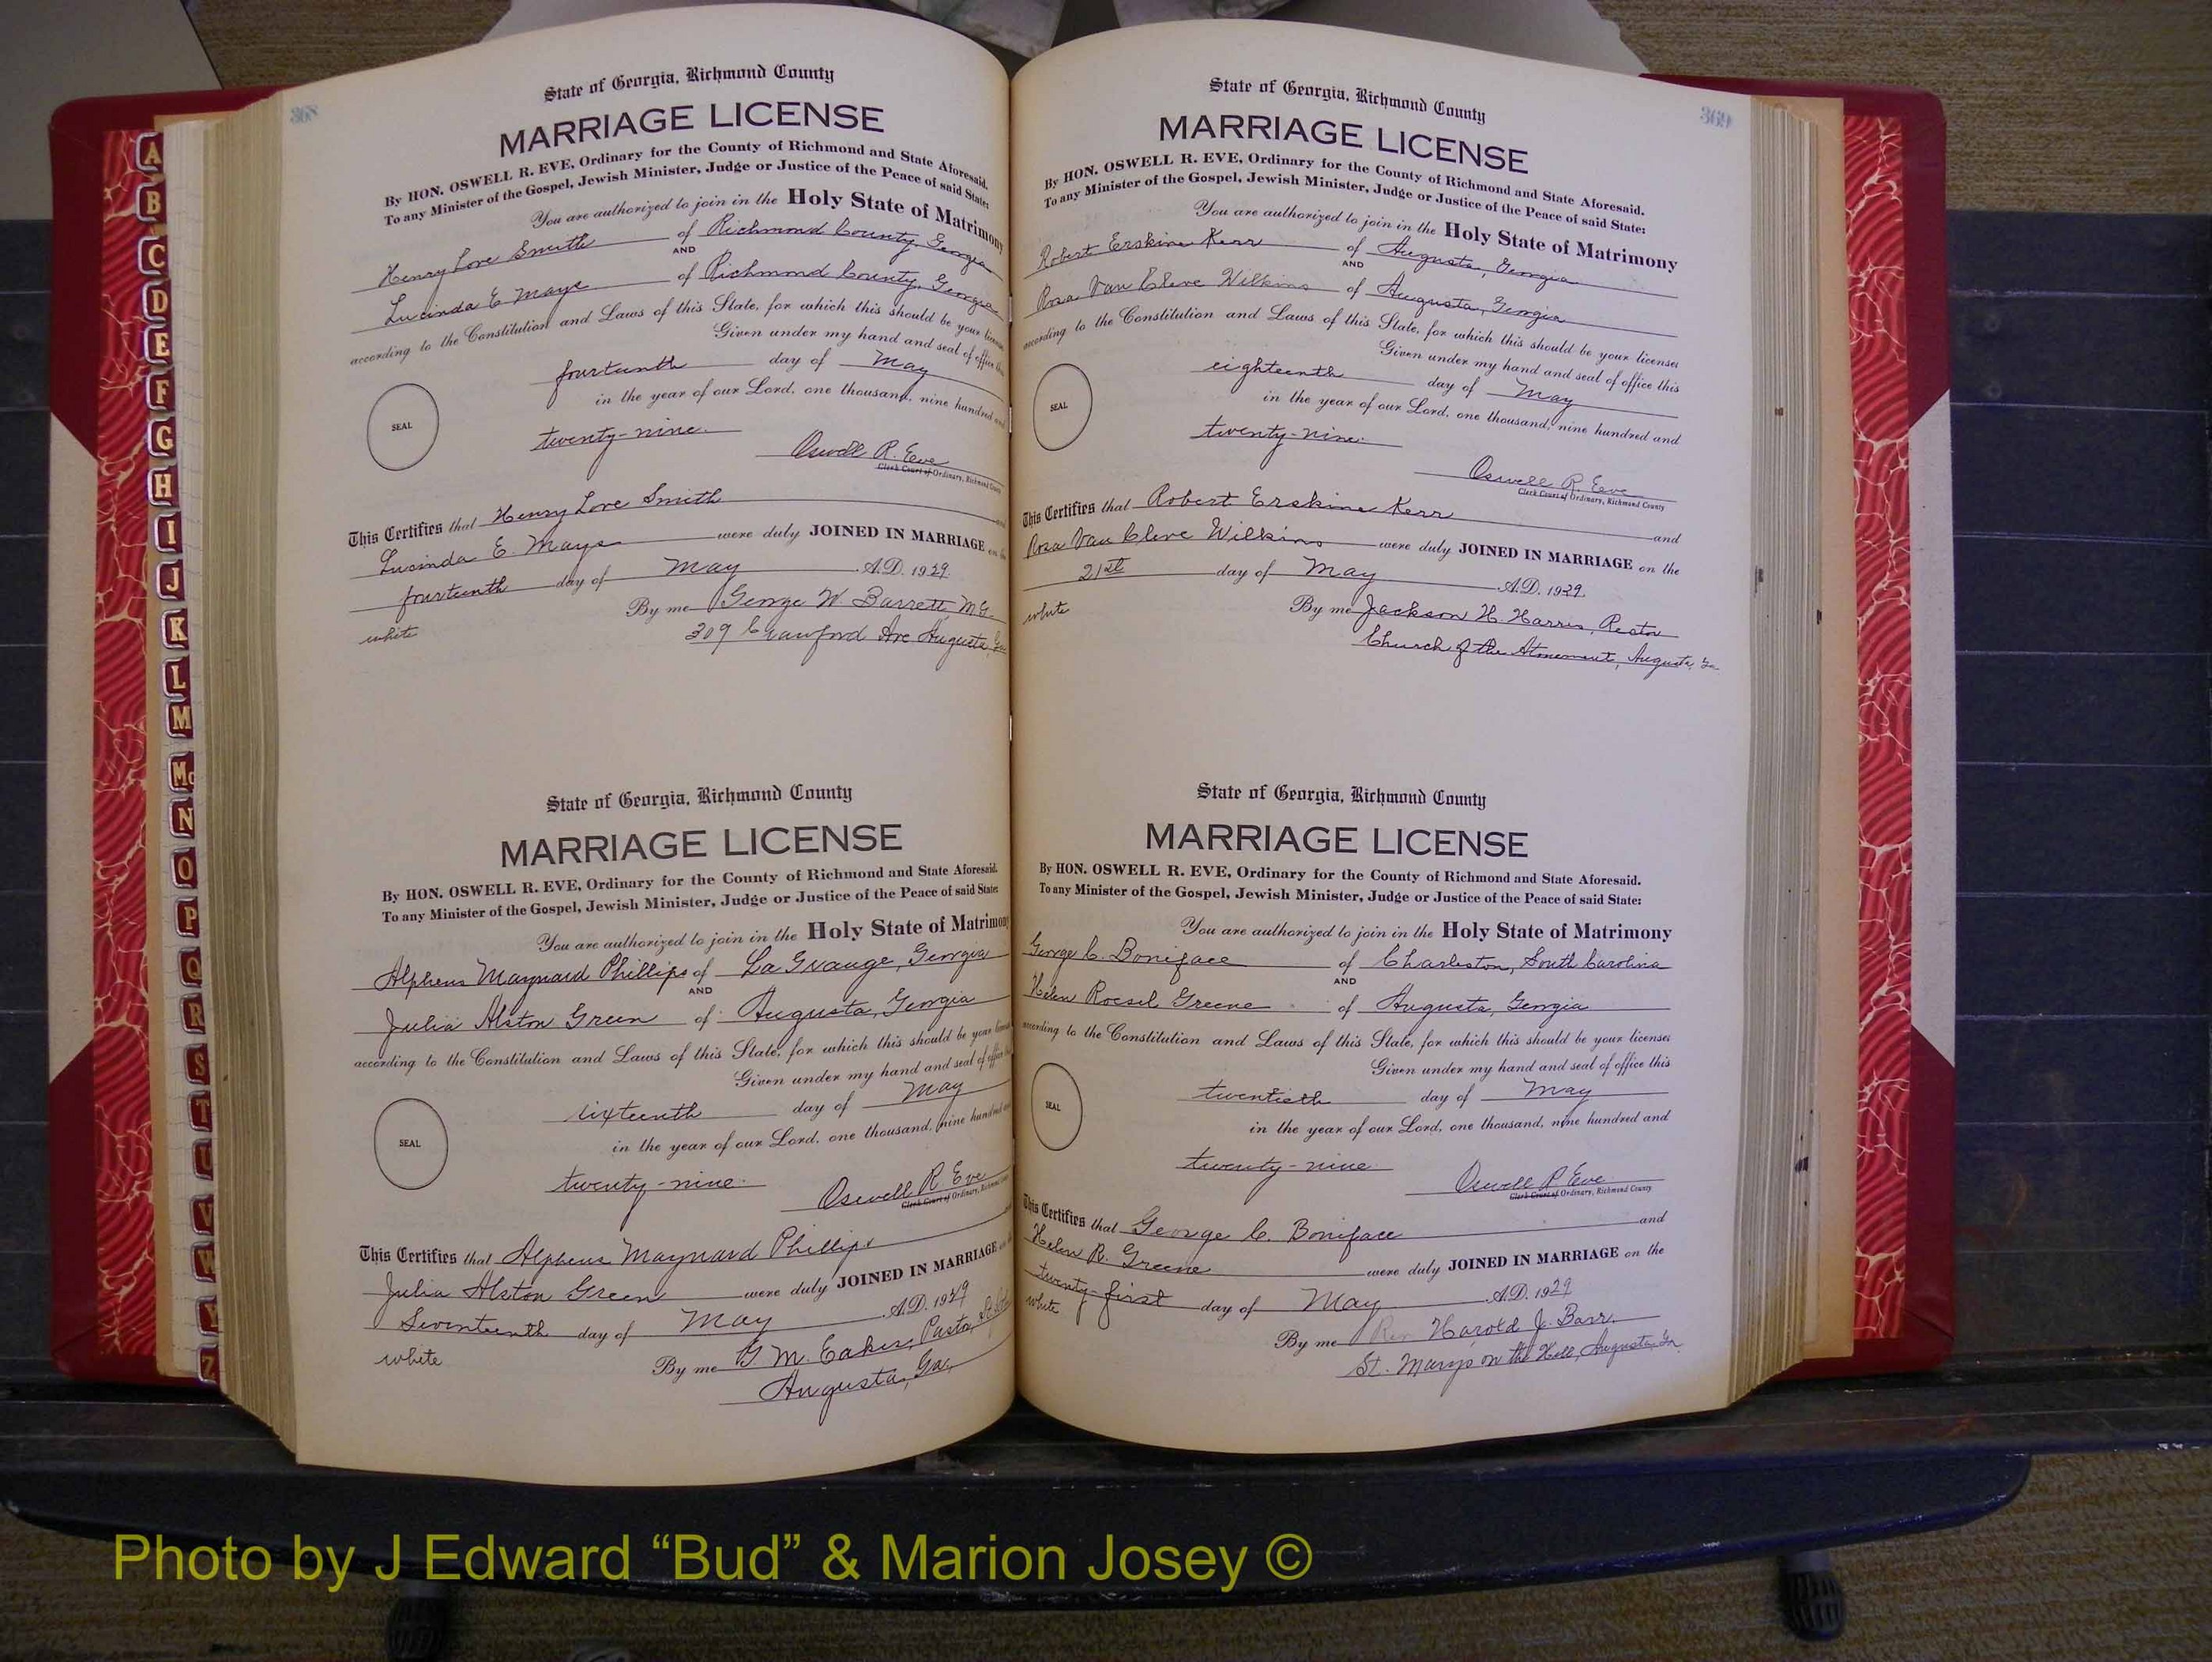 368
State of Georgia, Richmond County
MARRIAGE LICENSE
By HON. OSWELL R. EVE, Ordinary for the County of Richmond and State Aforesaid.
To any Minister of the Gospel, Jewish Minister, Judge or Justice of the Peace of said State:
You are authorized to join in the Holy State of Matrimony
Henry Love Smith of Richmond County, Georgia
AND
Lucinda E Mays of Richmond County, Georgia
according to the Constitution and Laws of this State, for which this should be your license
Given under my hand and seal of office this
fourteenth day of May
in the year of our Lord, one thousand, nine hundred and
SEAL
twenty-nine.
Oswell R. Eve
Clerk Court of Ordinary, Richmond County
This Certifies that Henry Love Smith and
Lucinda E. Mays were duly JOINED IN MARRIAGE on the
fourteenth day of May A.D. 1929
By me George W. Barrett, M.G.
white
309 Crawford Ave Augusta, Ga
State of Georgia, Richmond County
MARRIAGE LICENSE
By HON. OSWELL R. EVE, Ordinary for the County of Richmond and State Aforesaid.
To any Minister of the Gospel, Jewish Minister, Judge or Justice of the Peace of said State:
You are authorized to join in the Holy State of Matrimony
Alpheus Maynard Phillips of La Grange, Georgia
AND
Julia Alston Green of Augusta, Georgia
according to the Constitution and Laws of this State, for which this should be your license
Given under my hand and seal of office
sixteenth day of May
in the year of our Lord, one thousand, nine hundred
SEAL
twenty-nine.
Oswell R. Eve
Clerk Court of Ordinary, Richmond
This Certifies that Alpheus Maynard Phillips
Julia Alston Green were duly JOINED IN MARRIAGE
Seventeenth day of May A.D. 1929
white
By me G M. Eakes, Pastor, St.
Augusta, Ga.
369
State of Georgia, Richmond County
MARRIAGE LICENSE
By HON. OSWELL R. EVE, Ordinary for the County of Richmond and State Aforesaid.
To any Minister of the Gospel, Jewish Minister, Judge or Justice of the Peace of said State:
You are authorized to join in the Holy State of Matrimony
Robert Erskine Kerr of Augusta, Georgia
AND
Rosa Van Cleve Wilkins of Augusta, Georgia
according to the Constitution and Laws of this State, for which this should be your licenses
Given under my hand and seal of office this
eighteenth day of May
in the year of our Lord, one thousand, nine hundred and
SEAL
twenty-nine.
Oswell R. Eve
Clerk Court of Ordinary, Richmond County
This Certifies that Robert Erskine Kerr and
Rosa Van Cleve Wilkins were duly JOINED IN MARRIAGE on the
21st day of May A.D. 1929.
white
By me Jackson H. Harris, Rector
Church of the Atonement, Augusta, Ga
State of Georgia, Richmond County
MARRIAGE LICENSE
By HON. OSWELL R. EVE, Ordinary for the County of Richmond and State Aforesaid.
To any Minister of the Gospel, Jewish Minister, Judge or Justice of the Peace of said State:
You are authorized to join in the Holy State of Matrimony
George C. Boniface of Charleston, South Carolina
AND
Helen Roesel Greene of Augusta, Georgia
according to the Constitution and Laws of this State, for which this should be your licenses
Given under my hand and seal of office this
twentieth day of May
in the year of our Lord, one thousand, nine hundred and
SEAL
twenty-nine.
Oswell R. Eve
Clerk Court of Ordinary, Richmond County
This Certifies that George C. Boniface and
Helen R. Greene were duly JOINED IN MARRIAGE on the
twenty-first day of May A.D. 1929
white
By me Rev Harold J. Barr,
St. Mary's on the Hill, Augusta, Ga
A
B
C
D
E
F
G
H
I
J
K
L
M
Mc
N
O
P
Q
R
S
T
U
V
W
Y
Z
Photo by J Edward “Bud” & Marion Josey ©